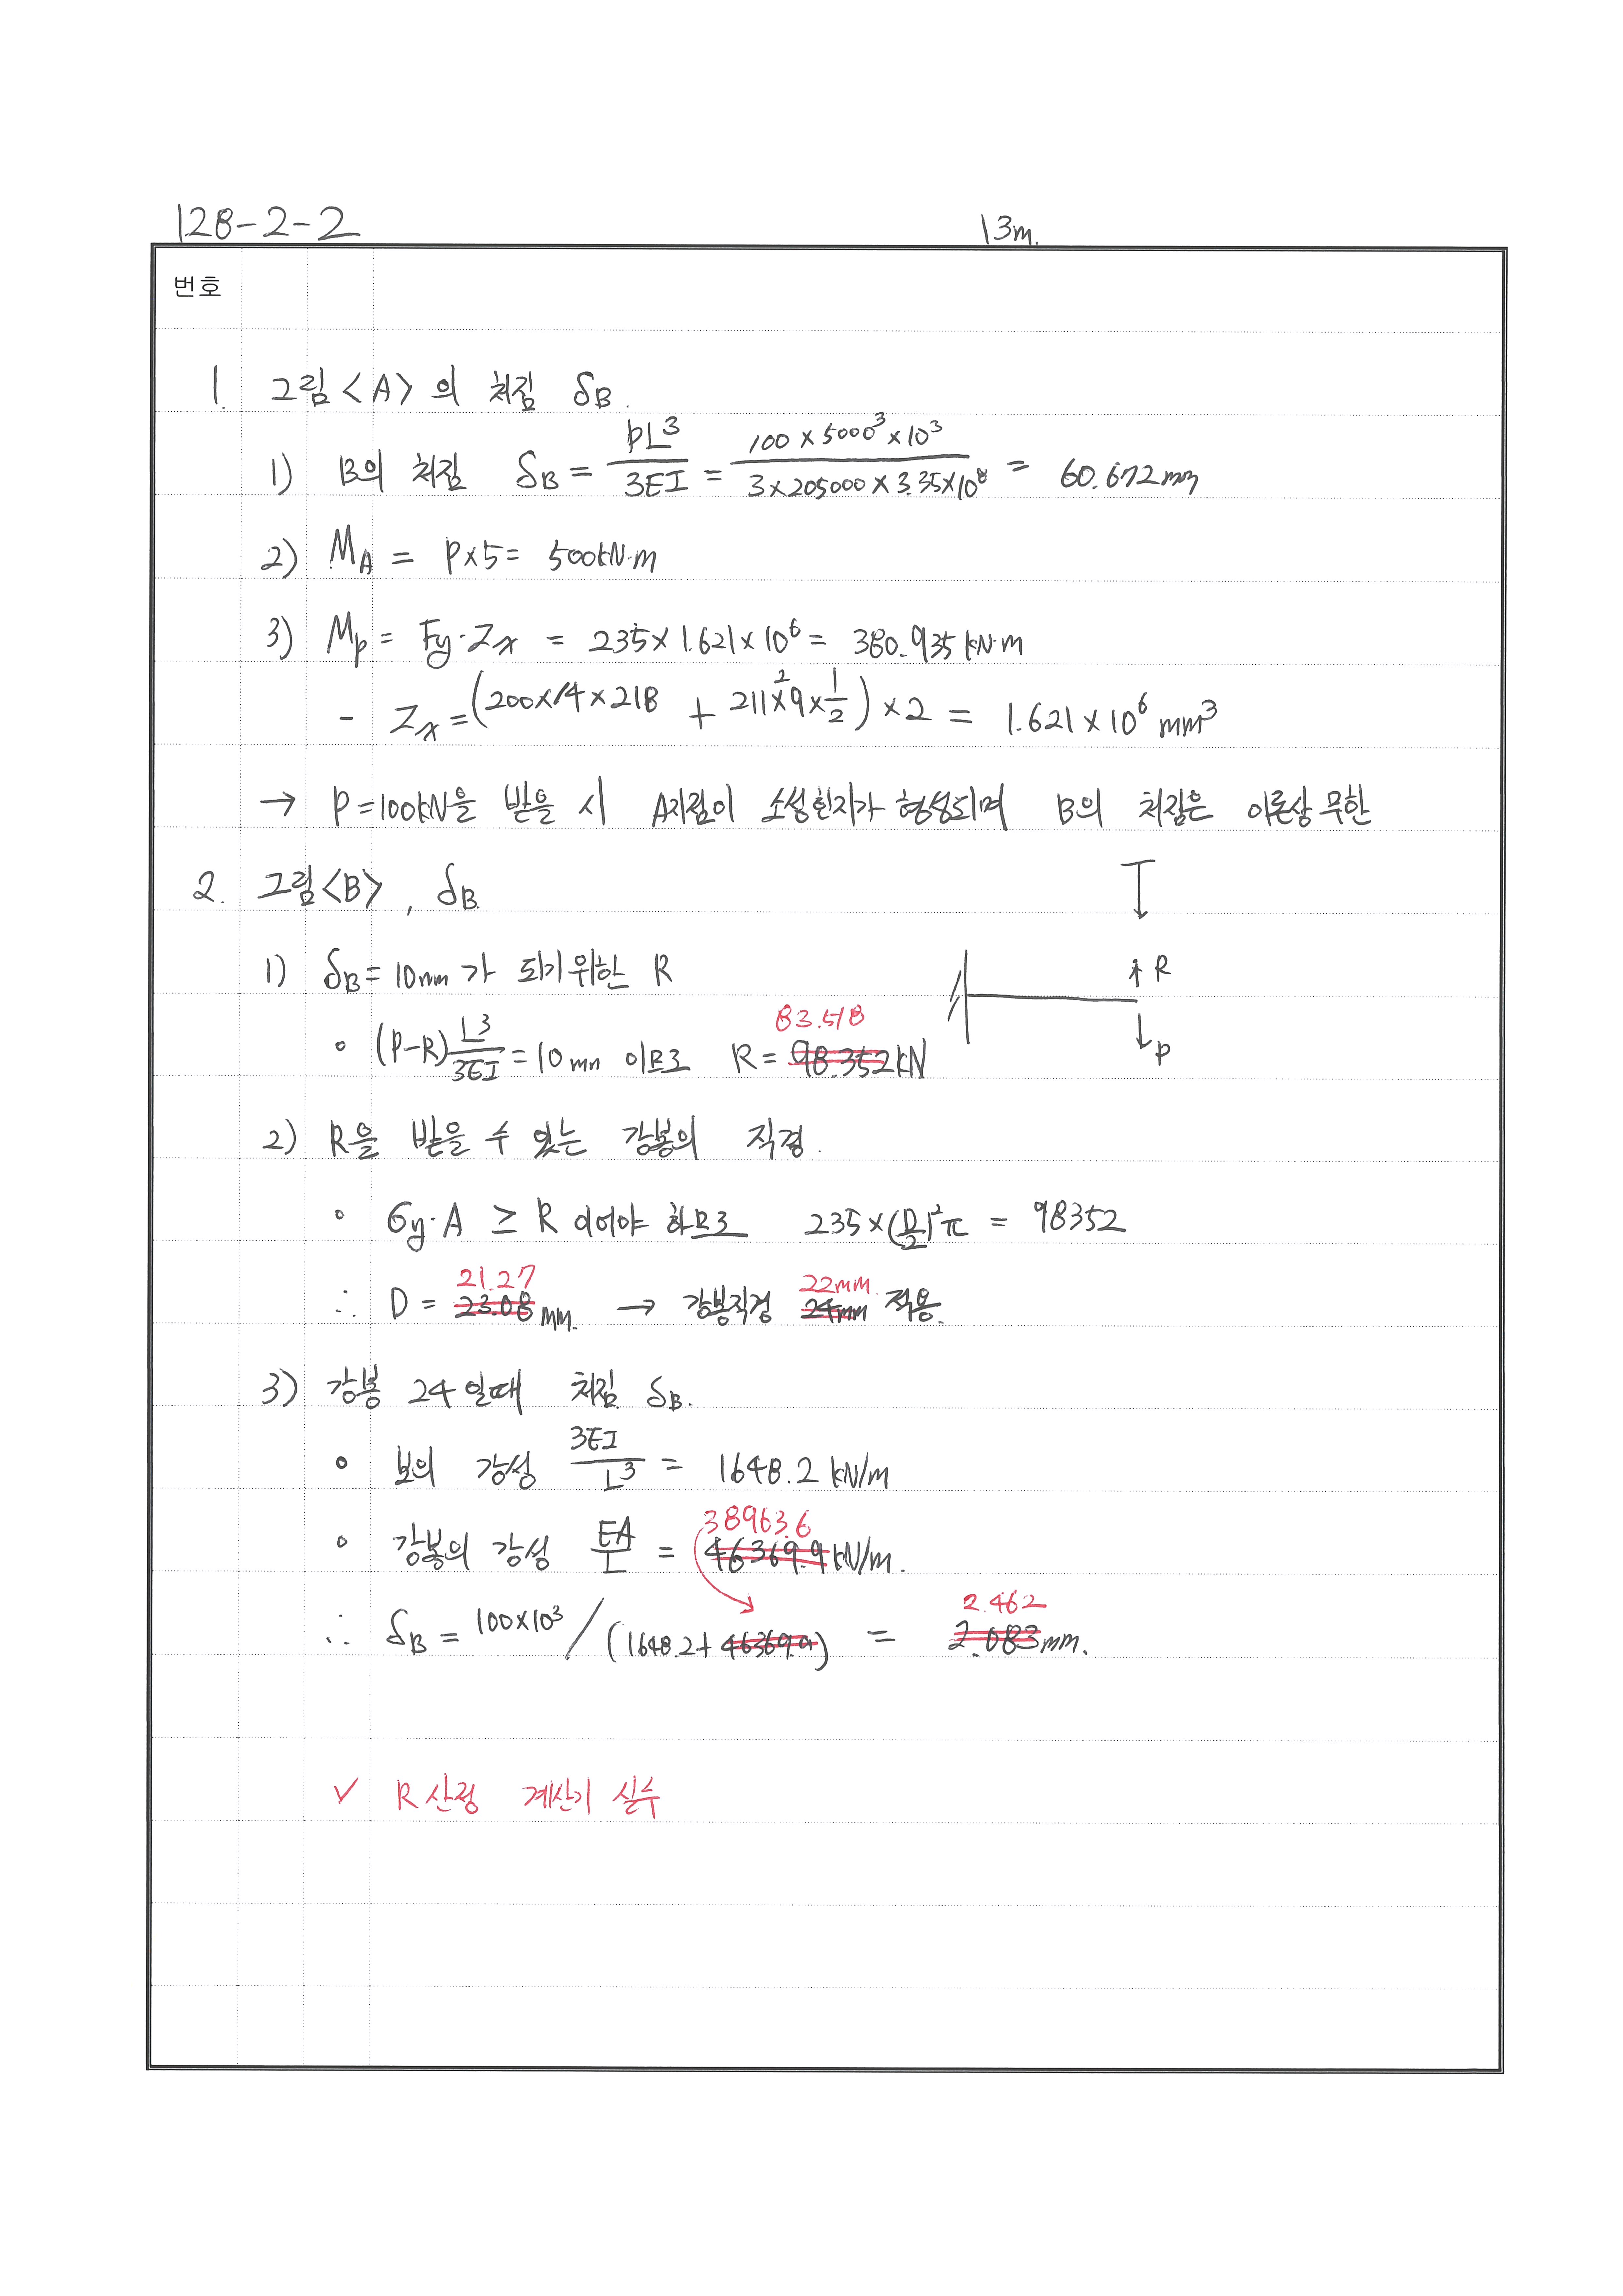 128-2-2
13m.
번호
1. 그림<A>의 처짐 δB.
1) B의 처짐 δB = PL³/3EI = 100×5000³×10³/3×205000×3.35×10⁸ = 60.672mm
2) MA = P×5 = 500kN·m
3) Mp = Fy·Zx = 235×1.621×10⁶ = 380.935kN·m
- Zx = (200×14×218 + 211²×9×1/2)×2 = 1.621×10⁶mm³
→ P=100kN을 받을 시 A지점이 소성힌지가 형성되며 B의 처짐은 이론상 무한
2. 그림<B>, δB
1) δB = 10mm가 되기위한 R
R
83.518
∘ (P-R)L³/3EI = 10mm 이므로 R = 98.352kN
P
2) R을 받을 수 있는 강봉의 직경.
∘ σy·A ≥ R 이어야 하므로 235×(D/2)²π = 98352
21.27 22mm
∴ D = 23.08mm. → 강봉직경 24mm 적용.
3) 강봉 24일때 처짐 δB.
∘ 보의 강성 3EI/L³ = 1648.2kN/m
38963.6
∘ 강봉의 강성 EA/L = 46369.9kN/m.
2.462
∴ δB = 100×10³/(1648.2+46369.9) = 2.083mm.
✓ R산정 계산기 실수